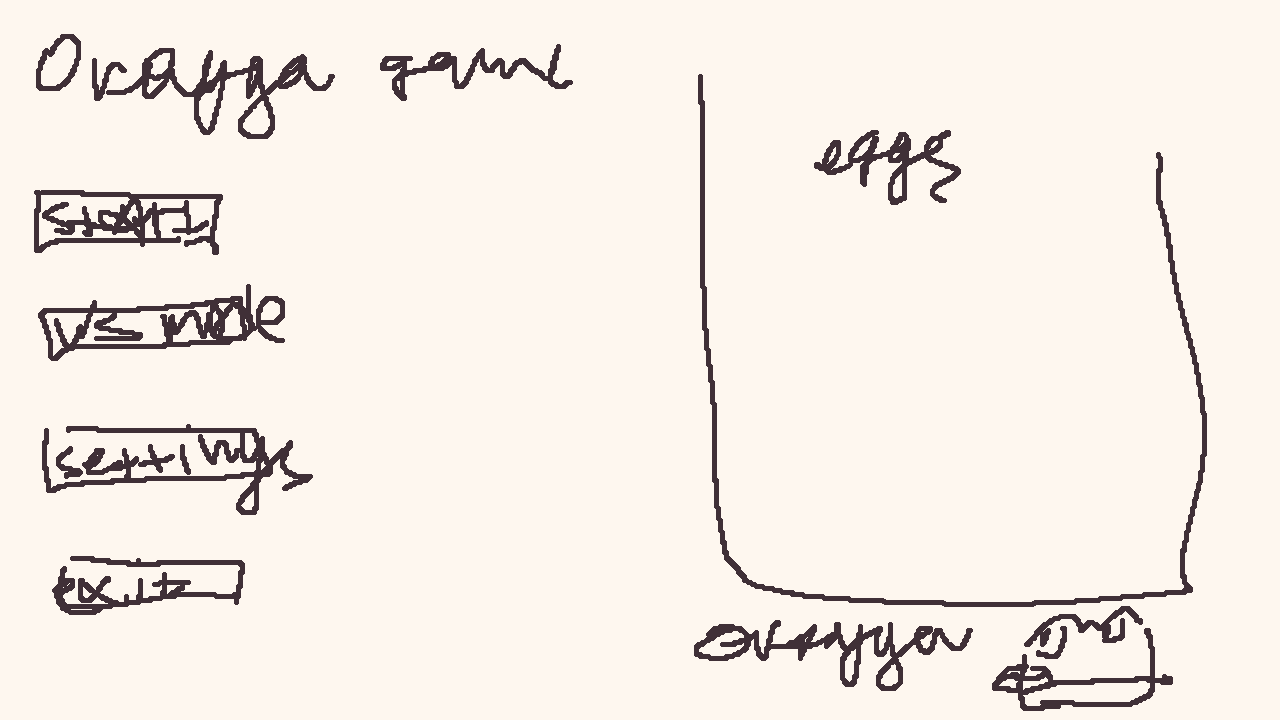 Okayga game
start
vs mode
settings
exit
eggs
okayga